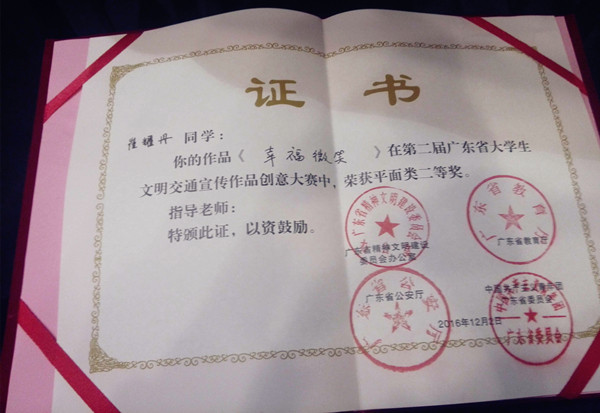 证 书
崔耀丹 同学：
你的作品《 幸福微笑 》在第二届广东省大学生
文明交通宣传作品创意大赛中，荣获平面类二等奖。
指导老师：
特颁此证，以资鼓励。
广东省精神文明建设
委员会办公室
广东省教育厅
广东省教育厅
广东省公安厅
广东省公安厅
中国共产主义青年团
广东省委员会
广东省委员会
2016年12月2日